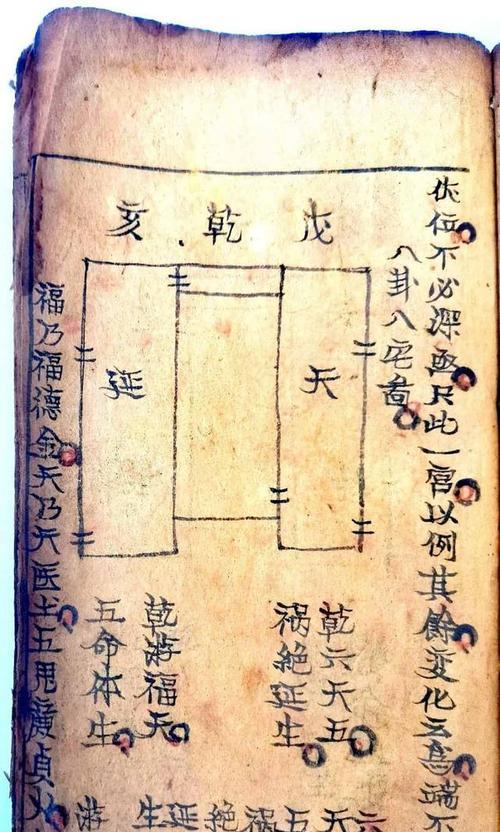 伏位不必深䆒只此一宫以例其餘变化云為端不
八卦八宅畵
戊乾亥
天
延
乾六天五
祸絶延生
乾游福天
五命体生
福乃福德金天乃天医土五鬼廉貞火
六
天
五
祸
絶
延
生
游